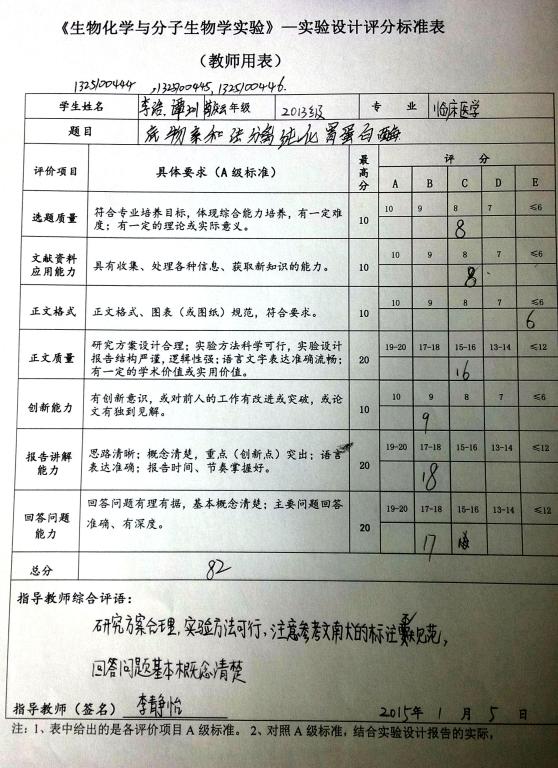 《生物化学与分子生物学实验》—实验设计评分标准表
（教师用表）
1325100444 ,1325100445, 1325100446.
学生姓名 年级 2013级 专 业 临床医学
题目 亲和 法分离纯化胃蛋白酶
评价项目 具体要求（A 级标准） 最高分 评 分
A B C D E
选题质量 符合专业培养目标，体现综合能力培养，有一定难 10 10 9 8 7 ≤6
度；有一定的理论或实际意义。 8
文献资料 10 9 8 7 ≤6
应用能力 具有收集、处理各种信息、获取新知识的能力。 10 8
正文格式 正文格式、图表（或图纸）规范，符合要求。 10 10 9 8 7 ≤6
6
研究方案设计合理；实验方法科学可行，实验设计 19-20 17-18 15-16 13-14 ≤12
正文质量 报告结构严谨，逻辑性强；语言文字表达准确流畅； 20
有一定的学术价值或实用价值。 16
创新能力 有创新意识，或对前人的工作有改进或突破，或论 10 10 9 8 7 ≤6
文有独到见解。 9
报告讲解 思路清晰；概念清楚，重点（创新点）突出；语言 19-20 17-18 15-16 13-14 ≤12
能力 表达准确；报告时间、节奏掌握好。 20 18
回答问题 回答问题有理有据，基本概念清楚；主要问题回答 19-20 17-18 15-16 13-14 ≤12
能力 准确、有深度。 20 17
总分 82
指导教师综合评语：
研究方案合理，实验方法可行，注意参考文献的标注要规范，
回答问题基本概念清楚
指导教师（签名） 李静怡 2015年 1 月 5 日
注：1、表中给出的是各评价项目 A 级标准。 2、对照 A 级标准，结合实验设计报告的实际，